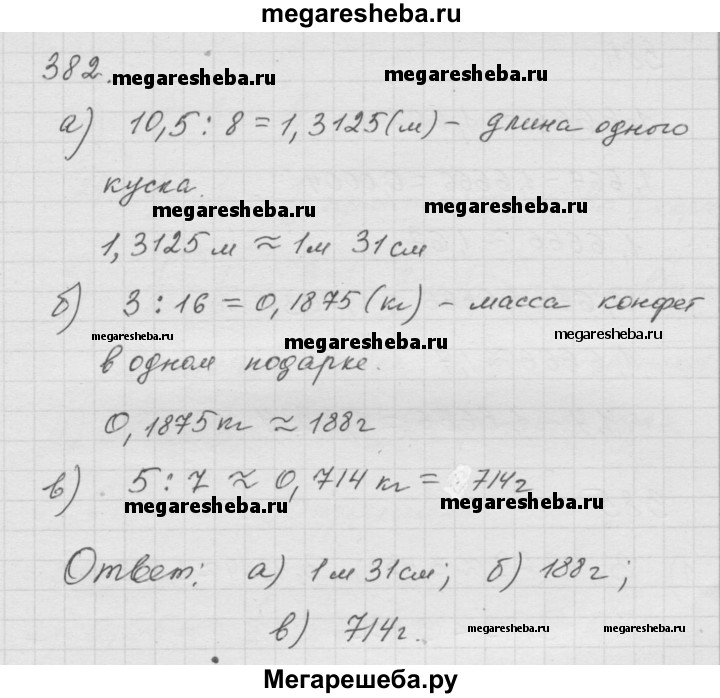 megaresheba.ru
382. megaresheba.ru megaresheba.ru
а) 10,5 : 8 = 1,3125 (м) – длина одного
куска.
megaresheba.ru megaresheba.ru
1,3125 м ≈ 1м 31 см
б) 3 : 16 = 0,1875 (кг) – масса конфет
megaresheba.ru megaresheba.ru megaresheba.ru
в одном подарке.
0,1875 кг ≈ 188 г
в) 5 : 7 ≈ 0,714 кг = 714 г
megaresheba.ru megaresheba.ru
Ответ: а) 1 м 31 см; б) 188 г;
в) 714 г.
megaresheba.ru megaresheba.ru
Мегарешеба.ру